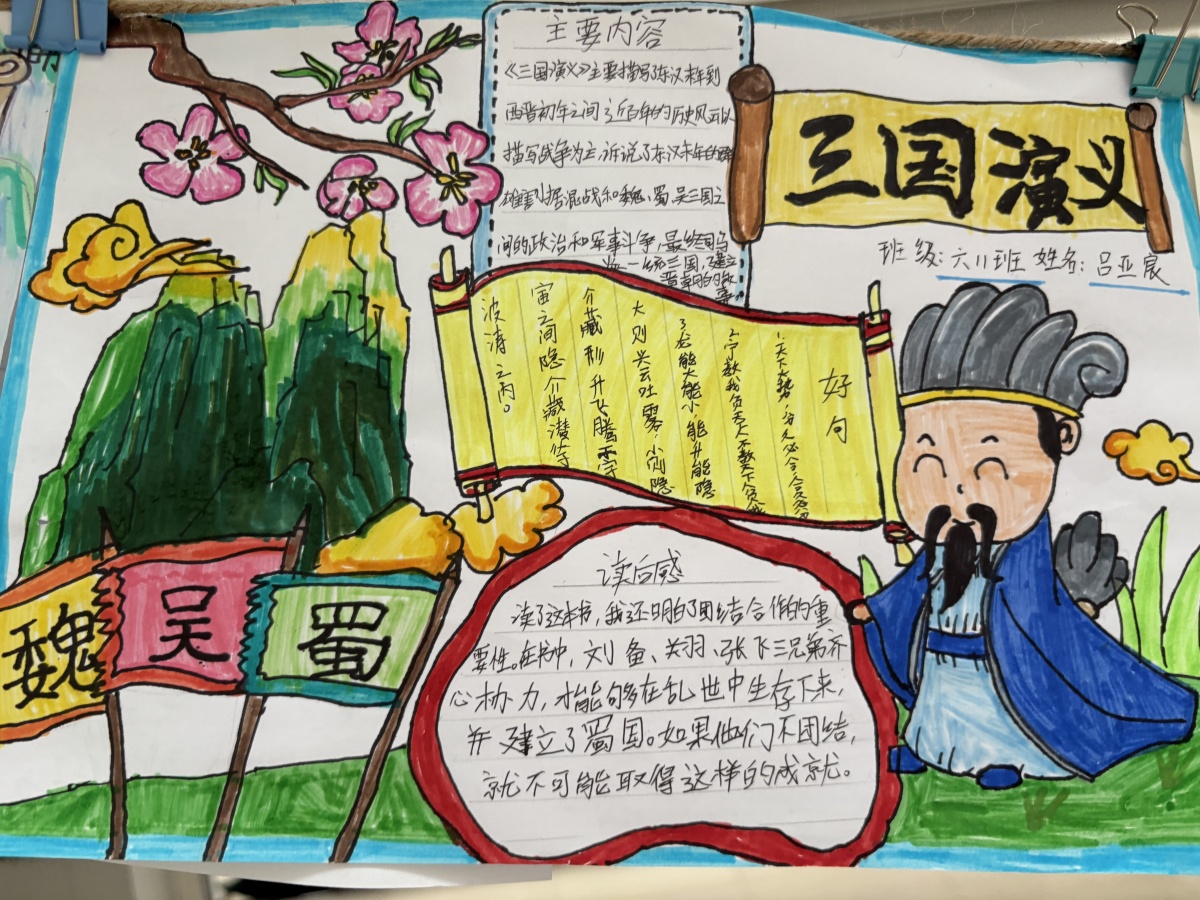 主要内容
《三国演义》主要描写了东汉末年到
西晋初年之间近百年的历史风云以
描写战争为主,诉说了东汉末年的群
雄割据混战和魏、蜀、吴三国之
间的政治和军事斗争,最终司马
炎一统三国,建立
晋朝的故
事
三国演义
班级:六11班 姓名:吕亚宸
好句
1.天下大势,分久必合,合久必分
2.宁教我负天下人不教天下人负我
3.龙能大能小,能升能隐
大则兴云吐雾,小则隐
介藏形升飞腾于宇
宙之间隐介藏潜伏
波涛之内。
魏
吴
蜀
读后感
读了这本书,我还明白了团结合作的重
要性。在书中,刘备、关羽、张飞三兄弟齐
心协力,才能够在乱世中生存下来,
并建立了蜀国。如果他们不团结,
就不可能取得这样的成就。